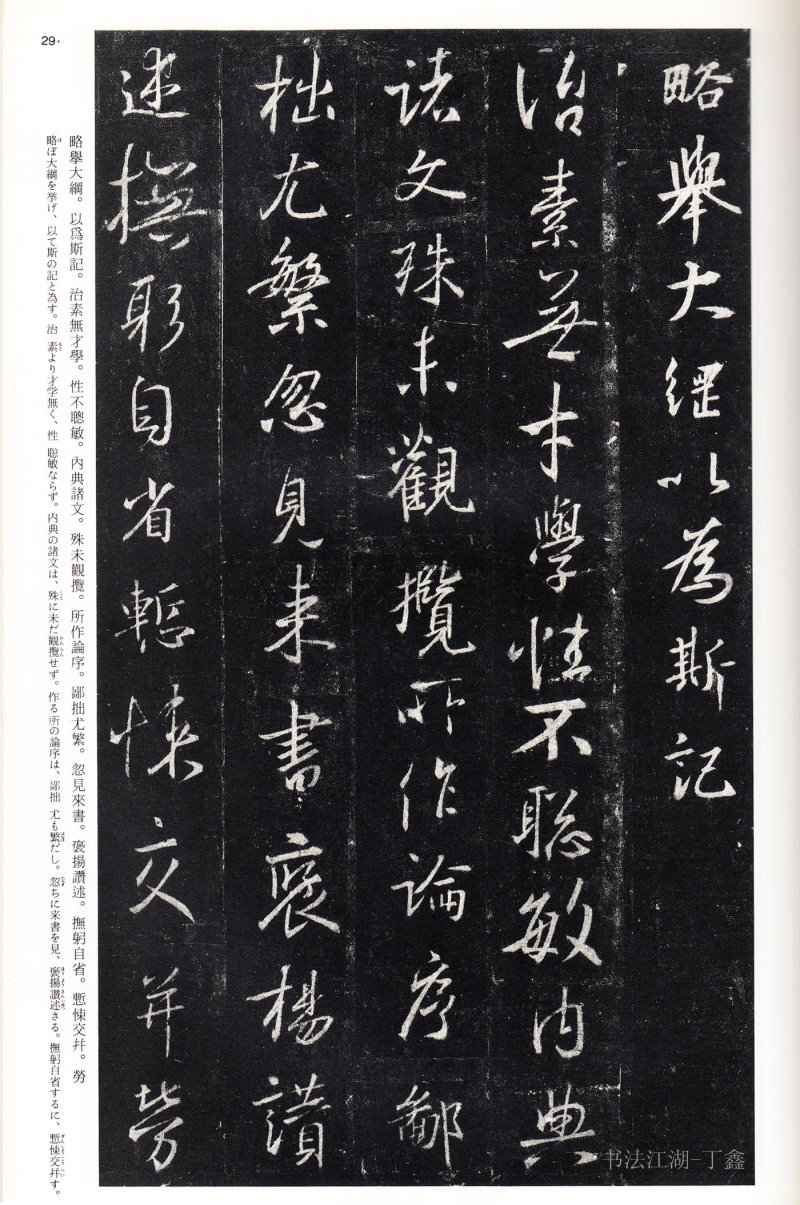 略舉大綱以為斯記
治素無才學性不聰敏內典
諸文殊未觀攬所作論序鄙
拙尤繁忽見來書褒揚讚
述撫躬自省慙悚交并勞
略舉大綱。以爲斯記。治素無才學。性不聰敏。內典諸文。殊未觀攬。所作論序。鄙拙尤繁。忽見來書。褒揚讚述。撫躬自省。慙悚交幷。勞
略ぼ大綱を挙げ、以て斯の記と為す。治 素より才学無く、性 聡敏ならず。内典の諸文は、殊に未だ観攬せず。作る所の論序は、鄙拙 尤も繁だし。忽ちに来書を見、褒揚讃述さる。撫躬自省するに、慙悚交幷す。
29・
书法江湖-丁鑫